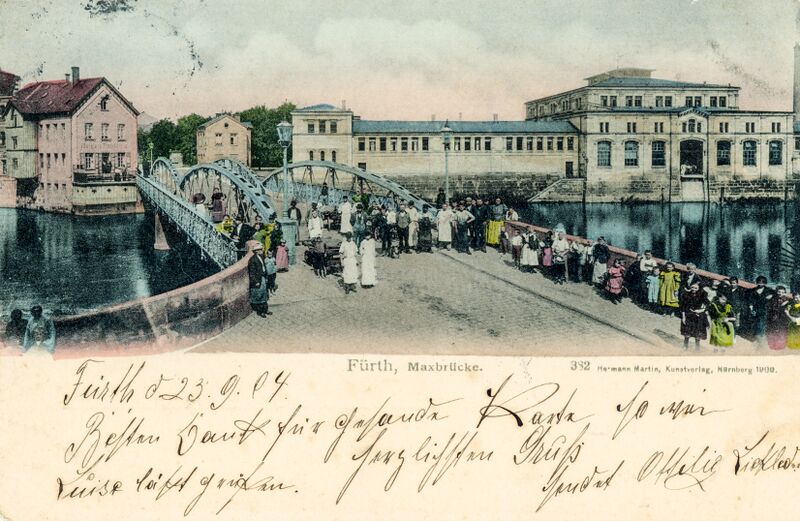 Fürth, Maxbrücke.
382 Hermann Martin, Kunstverlag, Nürnberg 1900.
Fürth d 23. 9. 04.
Besten Dank für gesande Karte so wie
herzlichsten Gruß
Luise läßt grüßen.
sendet Ottilie